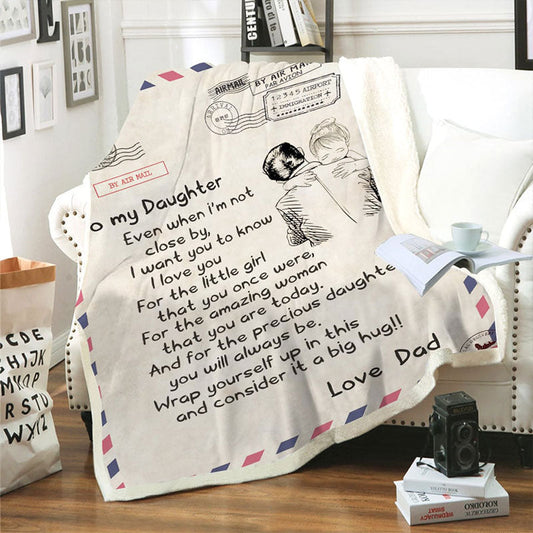 CENTURY
AIRMAIL
BY AIR MAIL
PAR AVION
12345 AIRPORT
IMMIGRATION
BY AIR MAIL
o my Daughter
Even when i'm not
close by,
I want you to know
I love you
For the little girl
that you once were,
For the amazing woman
that you are today.
And for the precious daughter
you will always be.
Wrap yourself up in this
and consider it a big hug!!
Love Dad
CDE
HIJK
WXYZ
KOŁODKO
GRZEGORZ W.
KOŁODKO
WĘDRUJĄCY
ŚWIAT